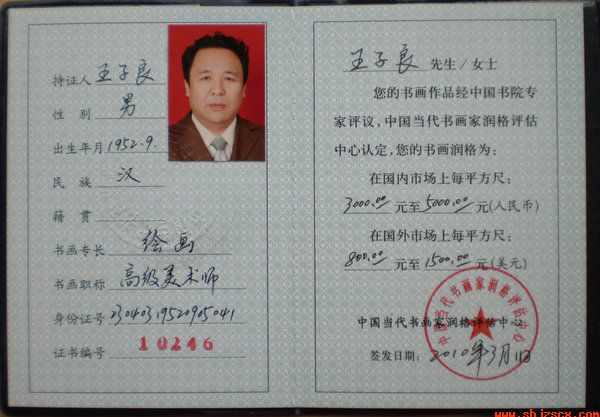 持证人 王子良
性 别 男
出生年月 1952.9.
民 族 汉
籍 贯
书画专长 绘画
书画职称 高级美术师
身份证号 23040319520905041
证书编号 10246
王子良 先生/女士
您的书画作品经中国书院专
家评议,中国当代书画家润格评估
中心认定,您的书画润格为:
在国内市场上每平方尺:
3000.00 元至 5000.00 元(人民币)
在国外市场上每平方尺:
800.00 元至 1500.00 元(美元)
中国当代书画家润格评估中心
中国当代书画家润格评估中心
签发日期: 2010年3月1日
www.shjzscx.com